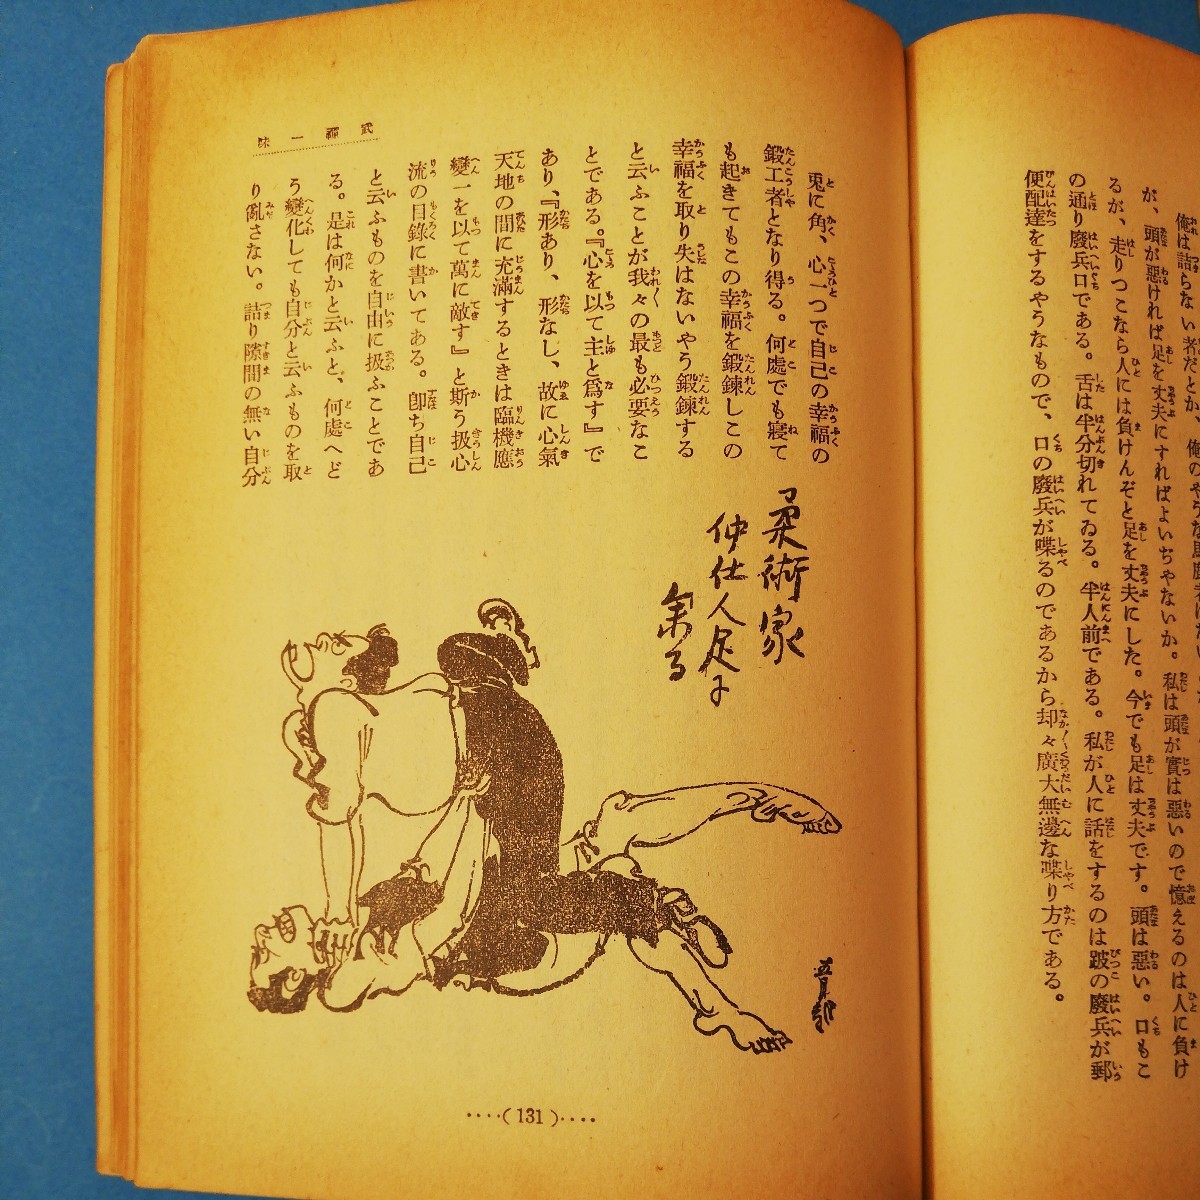 俺は詰らない者だとか、俺のやうな馬鹿者は
が、頭が惡ければ足を丈夫にすればよいぢやないか。私は頭が實は惡いので憶えるのは人に負け
るが、走りつこなら人には負けんぞと足を丈夫にした。今でも足は丈夫です。頭は惡い。口もこ
の通り廢兵口である。舌は半分切れてゐる。半人前である。私が人に話をするのは跛の廢兵が郵
便配達をするやうなもので、口の廢兵が喋るのであるから却々廣大無邊な喋り方である。
武禪一味
兎に角、心一つで自己の幸福の
鍛工者となり得る。何處でも寢て
も起きてもこの幸福を鍛鍊しこの
幸福を取り失はないやう鍛鍊する
と云ふことが我々の最も必要なこ
とである。『心を以て主と爲す』で
あり、『形あり、形なし、故に心氣
天地の間に充滿するときは臨機應
變一を以て萬に敵す』と斯う扱心
流の目錄に書いてある。卽ち自己
と云ふものを自由に扱ふことであ
る。是は何かと云ふと、何處へど
う變化しても自分と云ふものを取
り亂さない。詰り隙間の無い自分
柔術家
仲仕人足に
余る
····( 131 )····